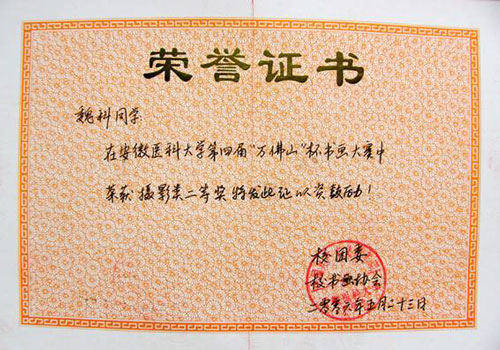 荣誉证书
魏科同学:
在安徽医科大学第四届"万佛山"杯书画大赛中
荣获摄影类二等奖特发此证以资鼓励!
校团委
校书画协会
二零零六年五月二十三日